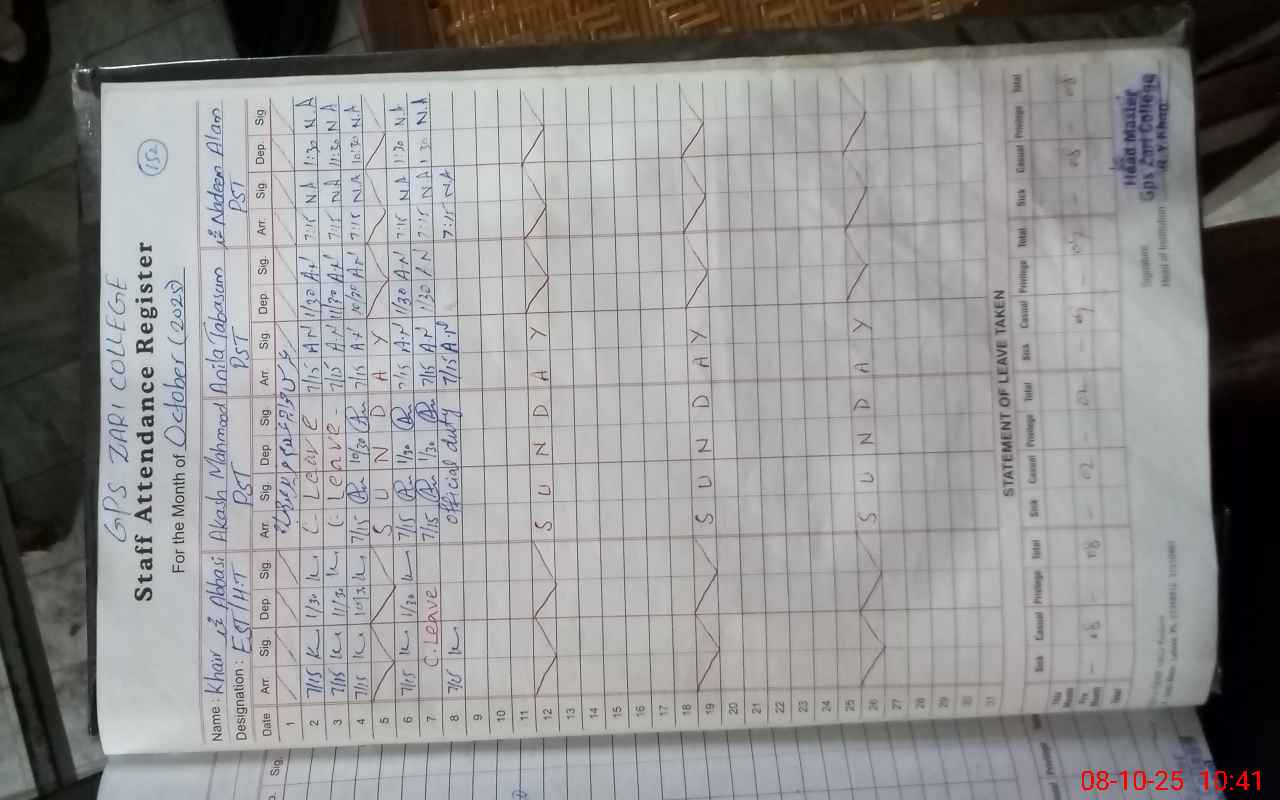 GPS ZARI COLLEGE
152
Staff Attendance Register
For the Month of October (2025)
Name: Khair Abbasi Akash Mahmood Anila Tabasum Nadeem Alam
Designation: EST/H.T PST PST PST
Date Arr. Sig. Dep. Sig. Arr. Sig. Dep Sig. Arr. Sig. Dep Sig. Arr. Sig Dep. Sig
1
2 7/15 K 1/30 K C. Leave 7/15 A.N 1/30 A.N 7:15 N.A 1:30 N.A
3 7/15 K 11/30 K C. Leave - 7/15 A.N 11/30 A.N 7:15 N.A 11:30 N.A
4 7/15 K 10/30 K 7/15 10/30 7/15 A.N 10/30 A.N 7:15 N.A 10:30 N.A
5 S U N D A Y
6 7/15 K 1/30 K 7/15 1/30 7/15 A.N 1/30 A.N 7:15 N.A 1:30 N.A
7 C. Leave 7/15 1/30 7/15 A.N 1/30 A.N 7:15 N.A 1:30 N.A
8 7/15 K official duty 7/15 A.N 7:15 N.A
9
10
11
12 S U N D A Y
13
14
15
16
17
18
19 S U N D A Y
20
21
22
23
24
25
26 S U N D A Y
27
28
29
30
31
STATEMENT OF LEAVE TAKEN
Sick Casual Privilege Total Sick Casual Privilege Total Sick Casual Privilege Total Sick Casual Privilege Total
This Month
Pre. Month - 08 - 08 - 02 - 02 - 07 - 07 - 08 - 08
Total
Signature
Head of Institution
Head Master
Gps Zari College
08-10-25 10:41